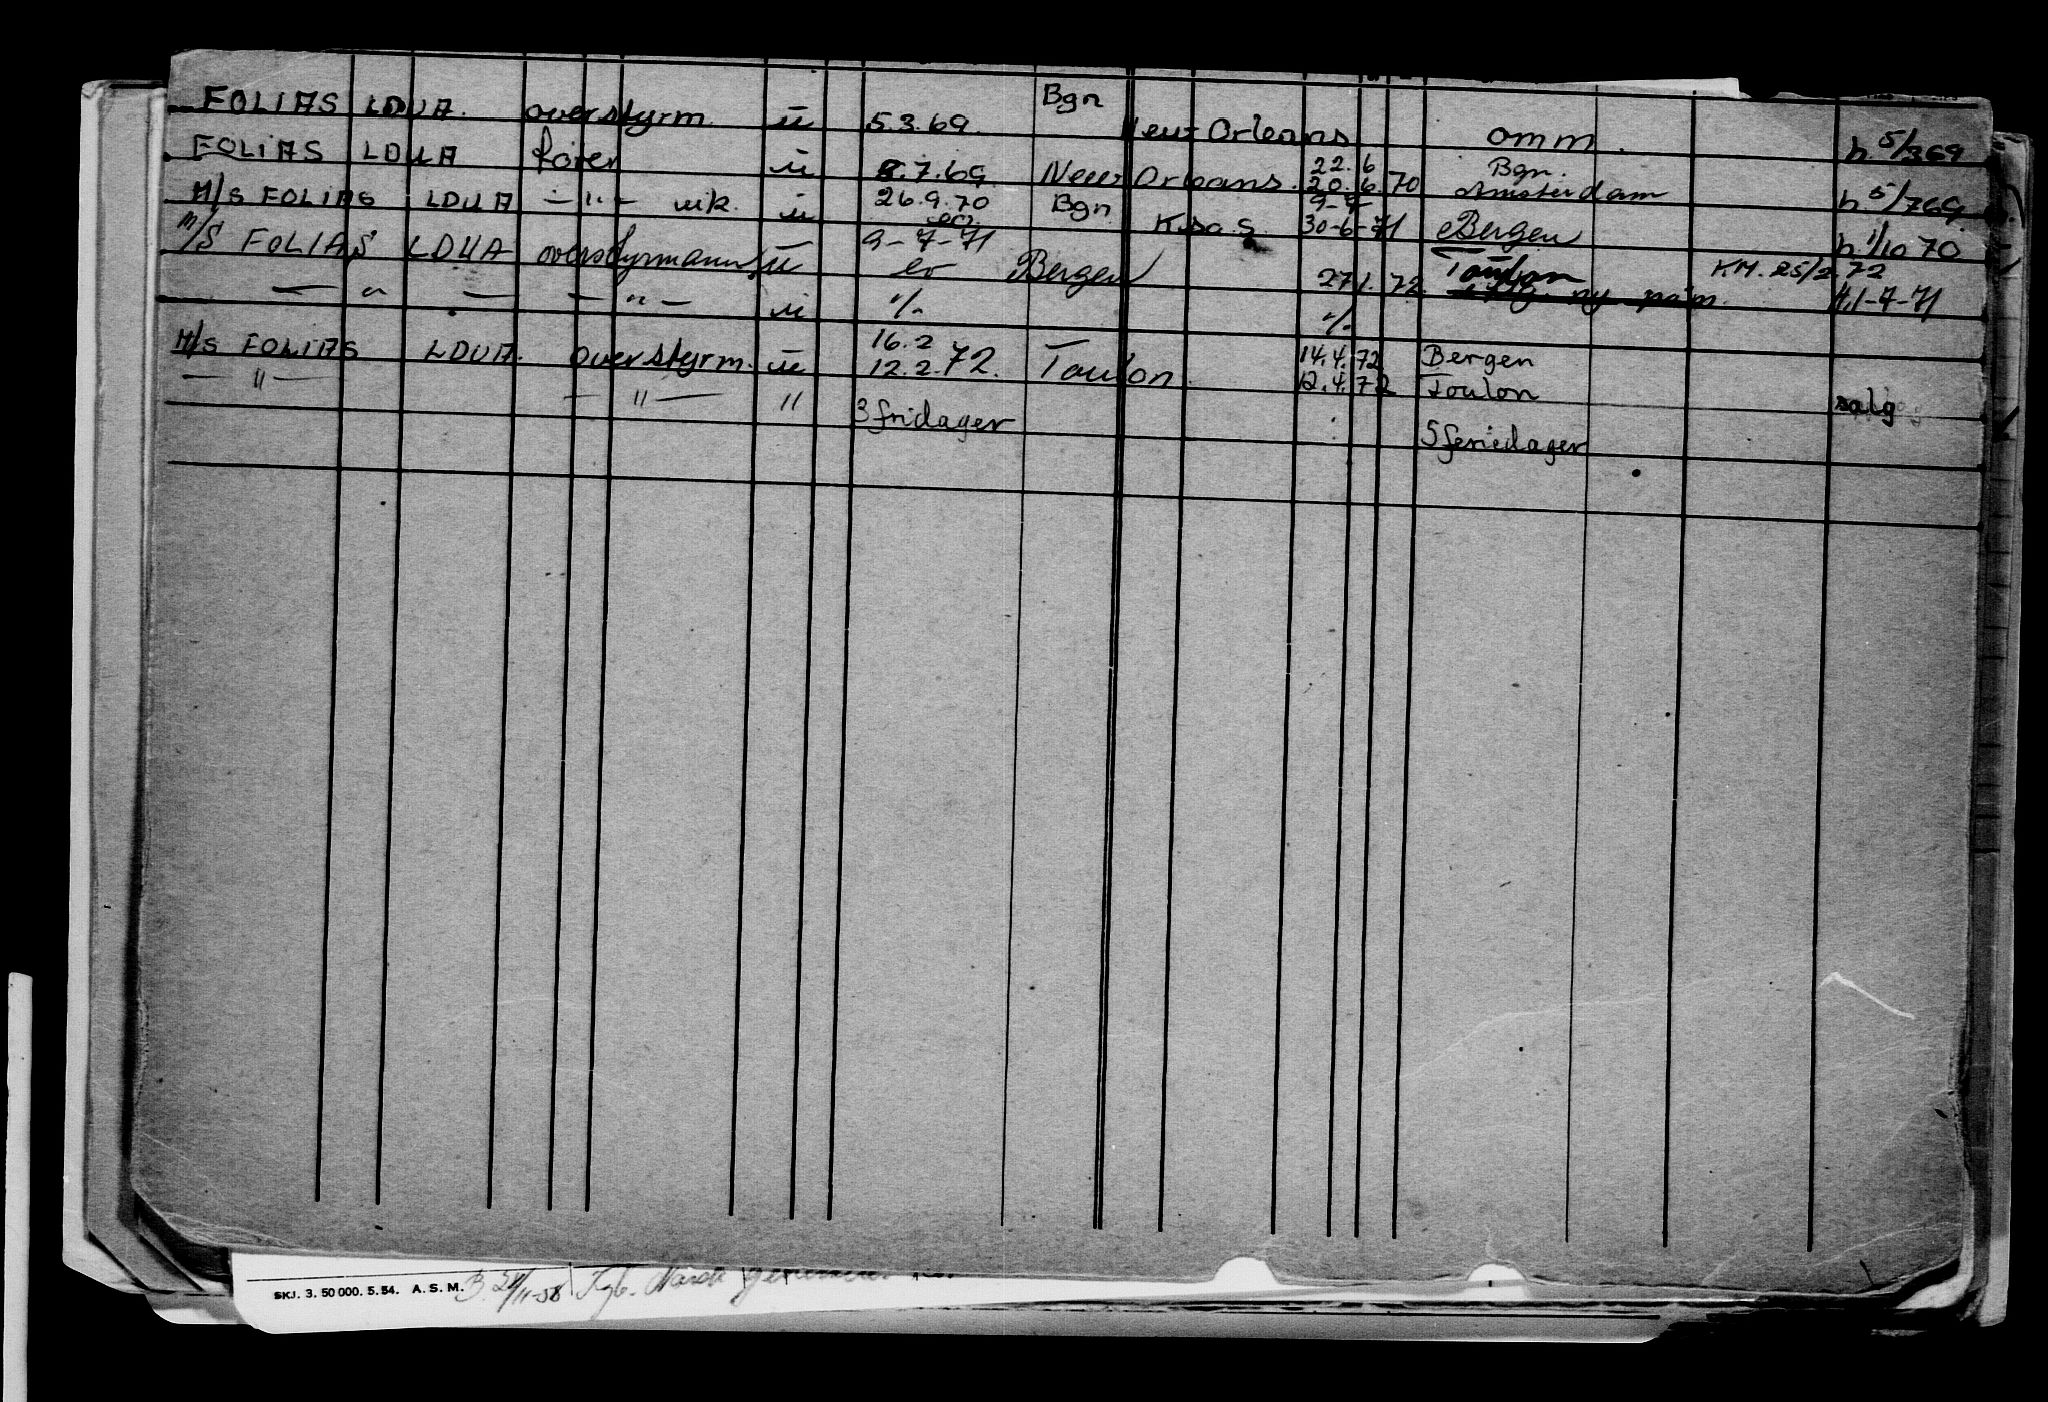 FOLIAS LDUA. overstyrm. u 5.3.69. Bgn New Orleans omm. h. 5/3 69
FOLIAS LDUA fører u 8.7.69 New Orleans. 22.6 20.6.70 Bgn. Amsterdam h. 5/7 69.
M/S FOLIAS LDUA -"- u 26.9.70 Bgn K.sa.S. 9-7 30-6-71 Bergen h. 1/10 70
M/S FOLIAS LDUA overstyrmann u 9-7-71 Bergen 27 1. 72. Toulon KM. 25/2 72
- " - - " - u ny 1-7-71
M/S FOLIAS LDUA. overstyrm. u 16.2 12.2.72. Toulon 14.4.72 12.4.72 Bergen Toulon salg
- " - - " - " 3 fridager 5 feriedager
SKJ. 3. 50 000. 5. 54. A. S. M. B. Kgb. Norsk